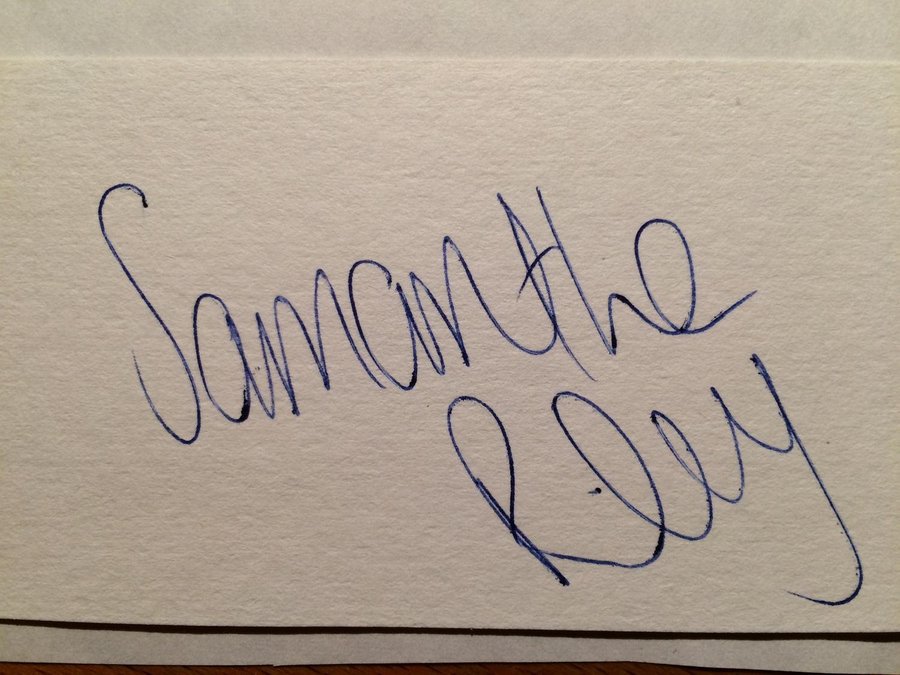 Samantha
Riley